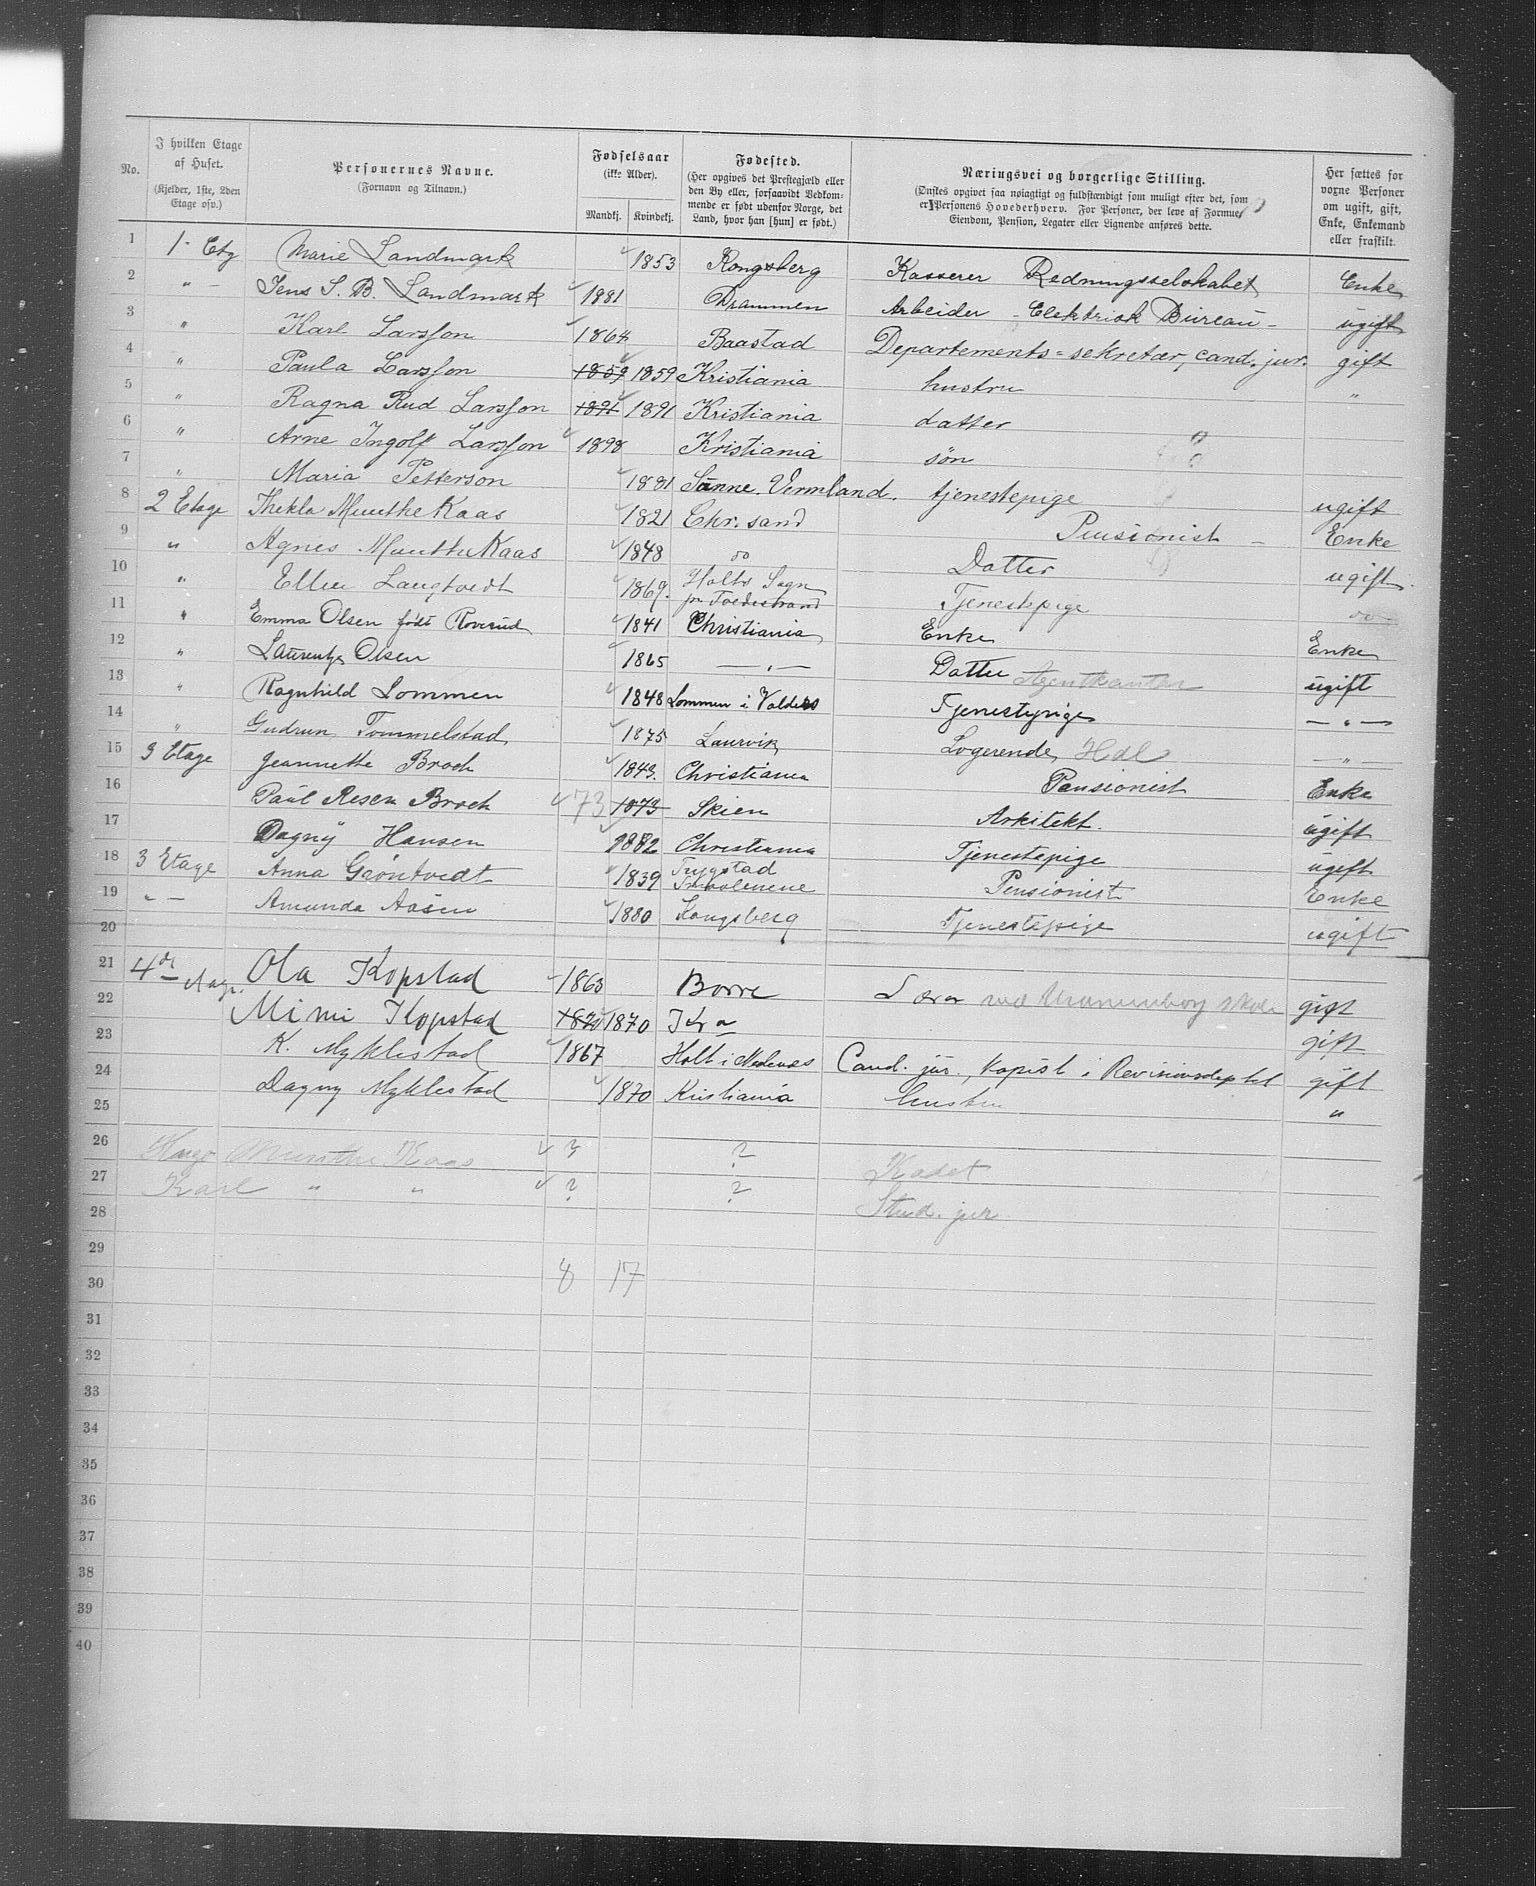 No. I hvilken Etage af Huset. (Kjelder, 1ste, 2den Etage osv.) Personernes Navne. (Fornavn og Tilnavn.) Fødselsaar (ikke Alder). Mandkj. Kvindekj. Fødested. (Her opgives det Prestegjæld eller den By eller, forsaavidt Vedkommende er født udenfor Norge, det Land, hvor han [hun] er født.) Næringsvei og borgerlige Stilling. (Ønskes opgivet saa nøiagtigt og fuldstændigt som muligt efter det, som er Personens Hovederhverv. For Personer, der leve af Formue, Eiendom, Pension, Legater eller Lignende anføres dette. Her sættes for voxne Personer om ugift, gift, Enke, Enkemand eller fraskilt.
1 1. Etg Marie Landmark 1853 Kongsberg Kasserer Redningsselskabet Enke
2 " — Jens S. B. Landmark 1881 Drammen Arbeider - Elektrisk Bureau - ugift
3 " Karl Larsson 1864 Baastad Departements=sekretær, cand. jur. gift
4 " Paula Larsson 1859 1859 Kristiania hustru "
5 " Ragna Rud Larsson 1891 1891 Kristiania datter
6 " Arne Ingolf Larsson 1898 Kristiania søn
7 " Maria Petterson 1881 Sunne. Vermland. tjenestepige ugift
8 2 Etage Thekla Munthe Kaas 1821 Chr. sand Pensionist — Enke
9 " Agnes Munthe Kaas 1848 do Datter ugift.
10 " Ellen Langtvedt 1869. Holts Sogn pr Tvedestrand Tjenestepige do
11 " Emma Olsen født Roverud 1841 Christiania Enke Enke
12 " Laurentze Olsen 1865 — " — Datter Agentkontor ugift
13 " Ragnhild Lommen 1848 Lommen i Valders Tjenestepige — " —
14 " Gudrun Tommelstad 1875 Laurvik Logerende, Hdl — " —
15 3 Etage Jeannette Broch 1843. Christiania Pensionist Enke
16 Paul Resen Broch 73 1873 Skien Arkitekt. ugift
17 Dagny Hansen 1882 Christiania Tjenestepige ugift
18 3 Etage Anna Grøntvedt 1839 Trygstad Smaalenene Pensionist Enke
19 " — Amunda Aasen 1880 Kongsberg Tjenestepige ugift
20
21 4de Ola Kopstad 1863 Borre Lærer ved Uranienborg skole gift
22 Mimi Kopstad 1870 1870 Kra gift
23 K. Myklestad 1867 Holt i Nedenæs Cand. jur., Kopist i Revisionsdeptet gift
24 Dagny Myklestad 1870 Kristiania hustru "
25
26 Hugo Munthe Kaas ? ? Kadet
27 Karl " " ? ? Stud. jur
28
29
30 8 17
31
32
33
34
35
36
37
38
39
40